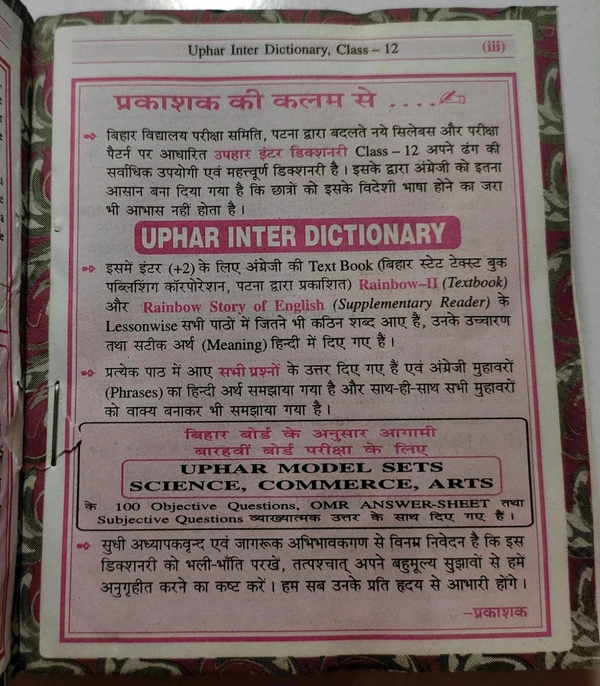 Uphar Inter Dictionary, Class – 12 (iii)
प्रकाशक की कलम से ....✍
बिहार विद्यालय परीक्षा समिति, पटना द्वारा बदलते नये सिलेबस और परीक्षा
पैटर्न पर आधारित उपहार इंटर डिक्शनरी Class – 12 अपने ढंग की
सर्वाधिक उपयोगी एवं महत्त्वपूर्ण डिक्शनरी है । इसके द्वारा अंग्रेजी को इतना
आसान बना दिया गया है कि छात्रों को इसके विदेशी भाषा होने का जरा
भी आभास नहीं होता है ।
UPHAR INTER DICTIONARY
इसमें इंटर (+2) के लिए अंग्रेजी की Text Book (बिहार स्टेट टेक्स्ट बुक
पब्लिशिंग कॉरपोरेशन, पटना द्वारा प्रकाशित) Rainbow–II (Textbook)
और Rainbow Story of English (Supplementary Reader) के
Lessonwise सभी पाठों में जितने भी कठिन शब्द आए हैं, उनके उच्चारण
तथा सटीक अर्थ (Meaning) हिन्दी में दिए गए हैं ।
प्रत्येक पाठ में आए सभी प्रश्नों के उत्तर दिए गए हैं एवं अंग्रेजी मुहावरों
(Phrases) का हिन्दी अर्थ समझाया गया है और साथ-ही-साथ सभी मुहावरों
को वाक्य बनाकर भी समझाया गया है ।
बिहार बोर्ड के अनुसार आगामी
बारहवीं बोर्ड परीक्षा के लिए
UPHAR MODEL SETS
SCIENCE, COMMERCE, ARTS
के 100 Objective Questions, OMR ANSWER-SHEET तथा
Subjective Questions व्याख्यात्मक उत्तर के साथ दिए गए हैं ।
सुधी अध्यापकवृन्द एवं जागरूक अभिभावकगण से विनम्र निवेदन है कि इस
डिक्शनरी को भली-भाँति परखें, तत्पश्चात् अपने बहुमूल्य सुझावों से हमें
अनुगृहीत करने का कष्ट करें । हम सब उनके प्रति हृदय से आभारी होंगे ।
–प्रकाशक